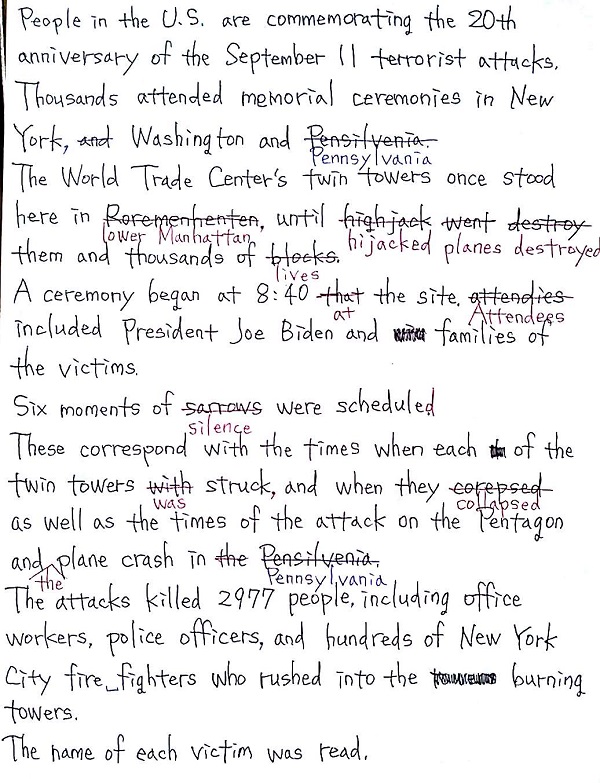 People in the U.S. are commemorating the 20th
anniversary of the September 11 terrorist attacks.
Thousands attended memorial ceremonies in New
York, and Washington and Pensilvenia.
Pennsylvania
The World Trade Center's twin towers once stood
here in Roremenhenten, until highjack went destroy
lower Manhattan hijacked planes destroyed
them and thousands of blocks.
lives
A ceremony began at 8:40 that the site. attendies
at Attendees
included President Joe Biden and families of
the victims.
Six moments of sarrows were scheduled
silence
These correspond with the times when each of the
twin towers with struck, and when they corepsed
was collapsed
as well as the times of the attack on the Pentagon
and plane crash in the Pensilvenia.
the Pennsylvania
The attacks killed 2977 people, including office
workers, police officers, and hundreds of New York
City fire fighters who rushed into the burning
towers.
The name of each victim was read.